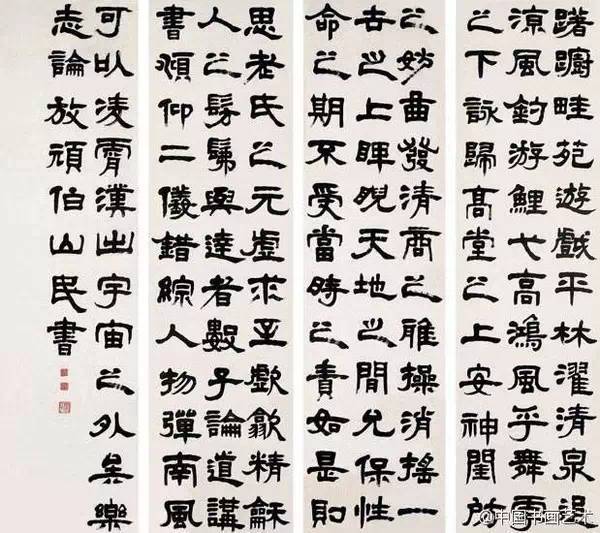 躇躕畦苑遊戲平林濯清泉追
涼風釣游鯉弋高鴻風乎舞雩
之下詠歸高堂之上安神閨房
之妙曲發清商之雅操消搖一
世之上睥睨天地之閒允保性
命之期不受當時之責如是則
思老氏之元虛求至歔歙精龢
人之髣髴與達者數子論道講
書頫仰二儀錯綜人物彈南風
可以凌霄漢出宇宙之外矣樂
志論放頑伯山民書
@中国书画艺术